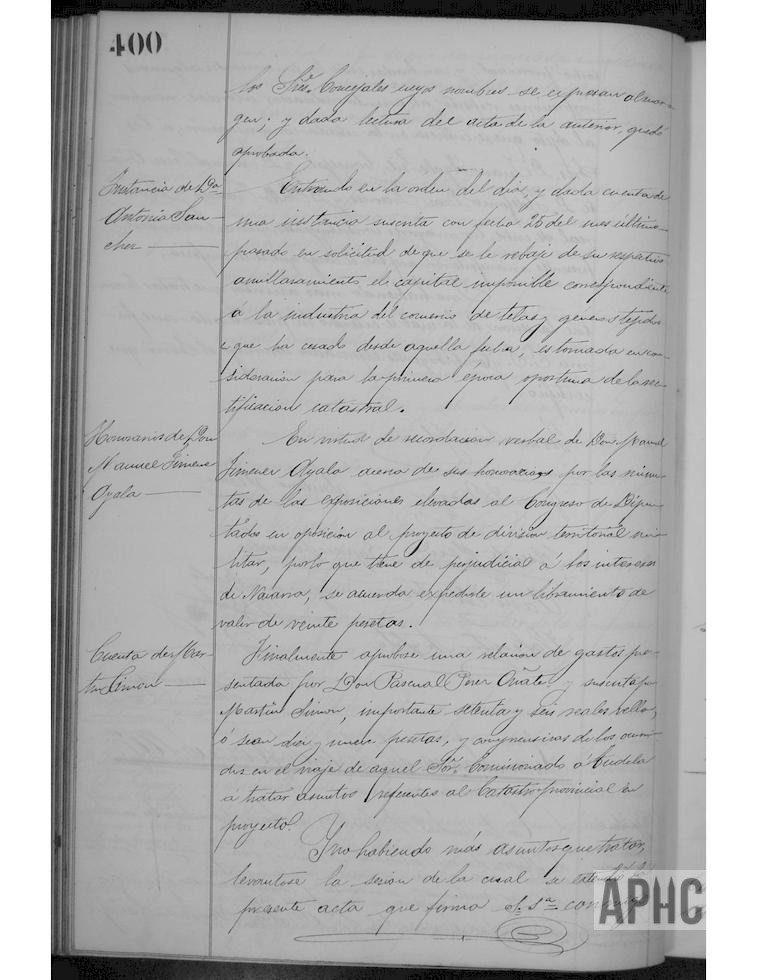 400
los Sres. Concejales cuyos nombres se expresan al mar-
gen; y dada lectura del acta de la anterior, quedó
aprobada.
Instancia de Dña
Antonia San-
chez
Entrando en la orden del día, y dada cuenta de
una instancia suscrita con fecha 25 del mes último
pasado en solicitud de que se le rebaje de su respectivo
amillaramiento el capital imponible correspondiente
á la industria del comercio de telas y generos tejidos
que ha cesado desde aquella fecha, es tomada en con-
sideracion para la primera época oportuna de la rec-
tificacion catastral.
Honorarios de Don
Manuel Jimenez
Ayala
En virtud de recordacion verbal de Don Manuel
Jimenez Ayala acerca de sus honorarios por las minu-
tas de las exposiciones elevadas al Congreso de Dipu-
tados en oposición al proyecto de división territorial mi-
litar, por lo que tiene de perjudicial á los intereses
de Navarra, se acuerda expedirle un libramiento de
valor de veinte pesetas.
Cuenta de Mar-
tin Simon
Finalmente apobose una relación de gastos pre-
sentada por Don Pascual Perez Oñate y suscrita por
Martin Simon, importante setenta y seis reales vellon,
ó sean diez y nueve pesetas, y comprensivas de los ocurri-
dos en el viaje de aquel Sor. Comisionado á Tudela
á tratar asuntos referentes al Catastro provincial en
proyecto.
Y no habiendo más asuntos que tratar,
levantose la sesion de la cual se extendió la
presente acta que firma S. Sª con
APHC